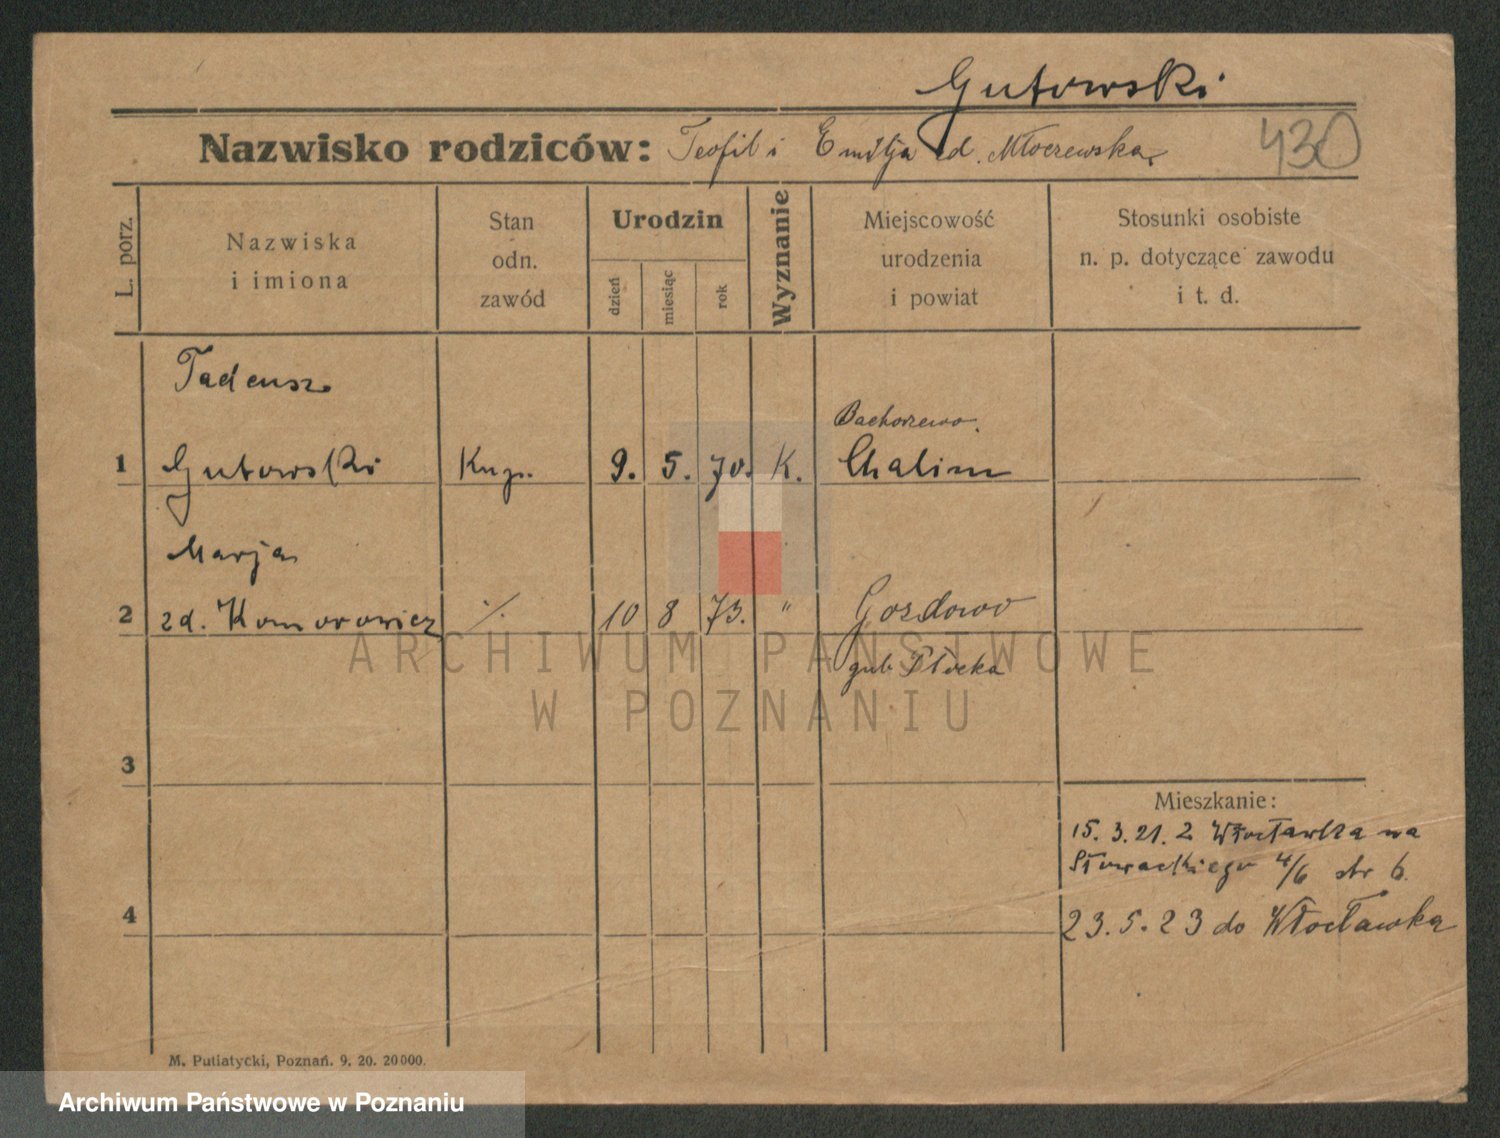 Gutowski
Nazwisko rodziców: Teofil i Emilja zd. Młoczewska
430
L. porz.
Nazwiska
i imiona
Stan
odn.
zawód
Urodzin
dzień
miesiąc
rok
Wyznanie
Miejscowość
urodzenia
i powiat
Stosunki osobiste
n. p. dotyczące zawodu
i t. d.
Tadeusz
1 Gutowski
9. 5. 70. K.
Bachorzewo.
Chalin
Marja
2 zd. Komorowicz ./. 10 8 73. " Gozdowo
gub. Płocka
ARCHIWUM PAŃSTWOWE
W POZNANIU
3
4
Mieszkanie:
15. 3. 21. z Włocławka na
Słowackiego 4/6 str 6.
23. 5. 23 do Włocławka
M. Putiatycki, Poznań. 9. 20. 20000.
Archiwum Państwowe w Poznaniu